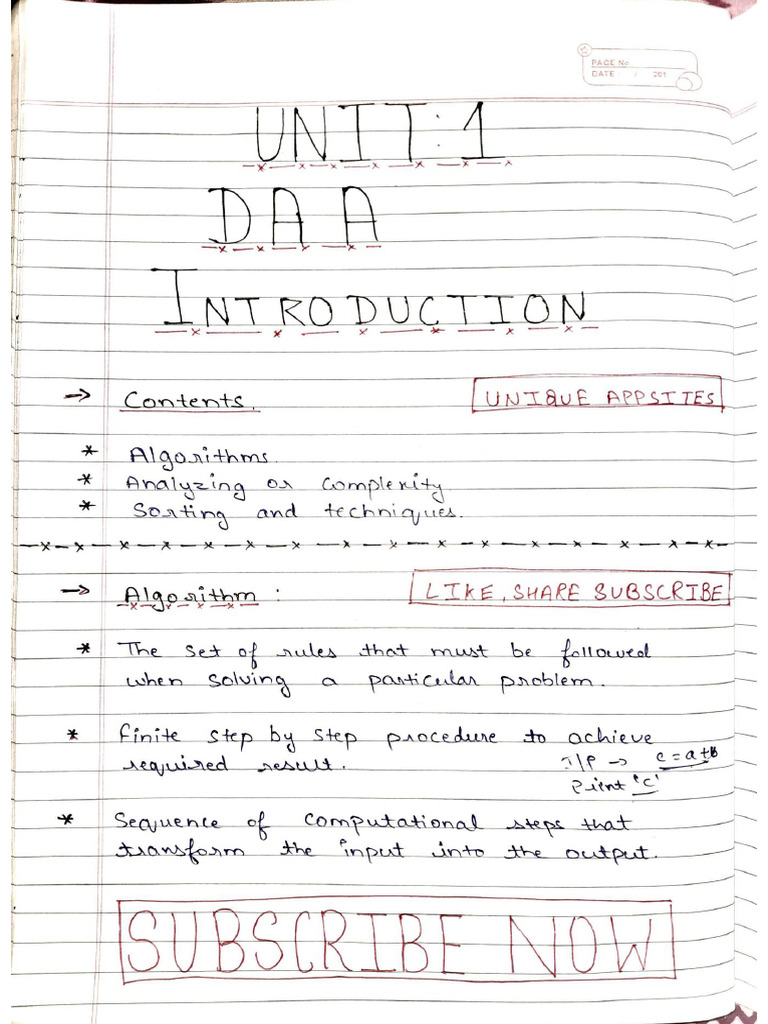 PAGE No.
DATE / / 201
UNIT:1
DAA
INTRODUCTION
→ Contents.
UNIQUE APPSITES
* Algorithms.
* Analyzing or Complexity.
* Sorting and techniques.
→ Algorithm :
LIKE, SHARE SUBSCRIBE
* The set of rules that must be followed
when solving a particular problem.
* finite step by step procedure to achieve
required result.
I/P → c=a+b
Print 'c'
* Sequence of computational steps that
transform the input into the output.
SUBSCRIBE NOW